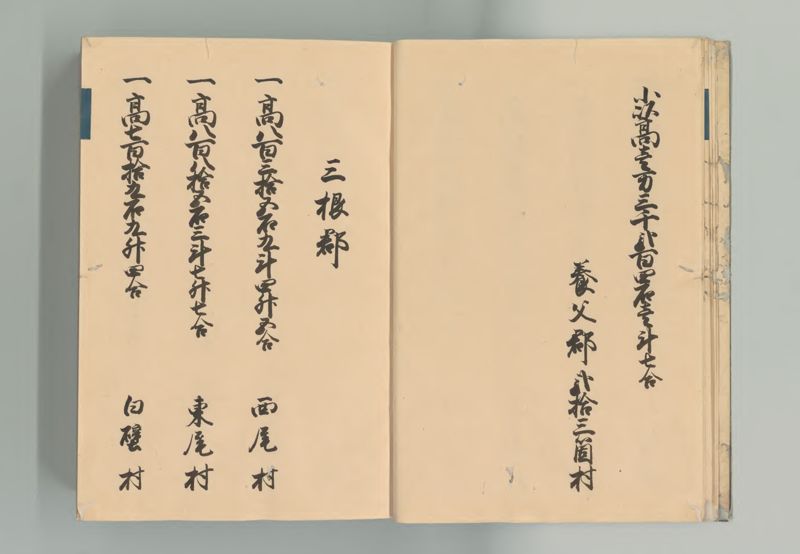 小以高壱万三千弐百四石壱斗七合
養父郡弐拾三箇村
三根郡
一高八百三拾五石九斗四升五合 西尾村
一高八百八拾五石三斗七升七合 東尾村
一高七百拾九石九升四合 白壁村